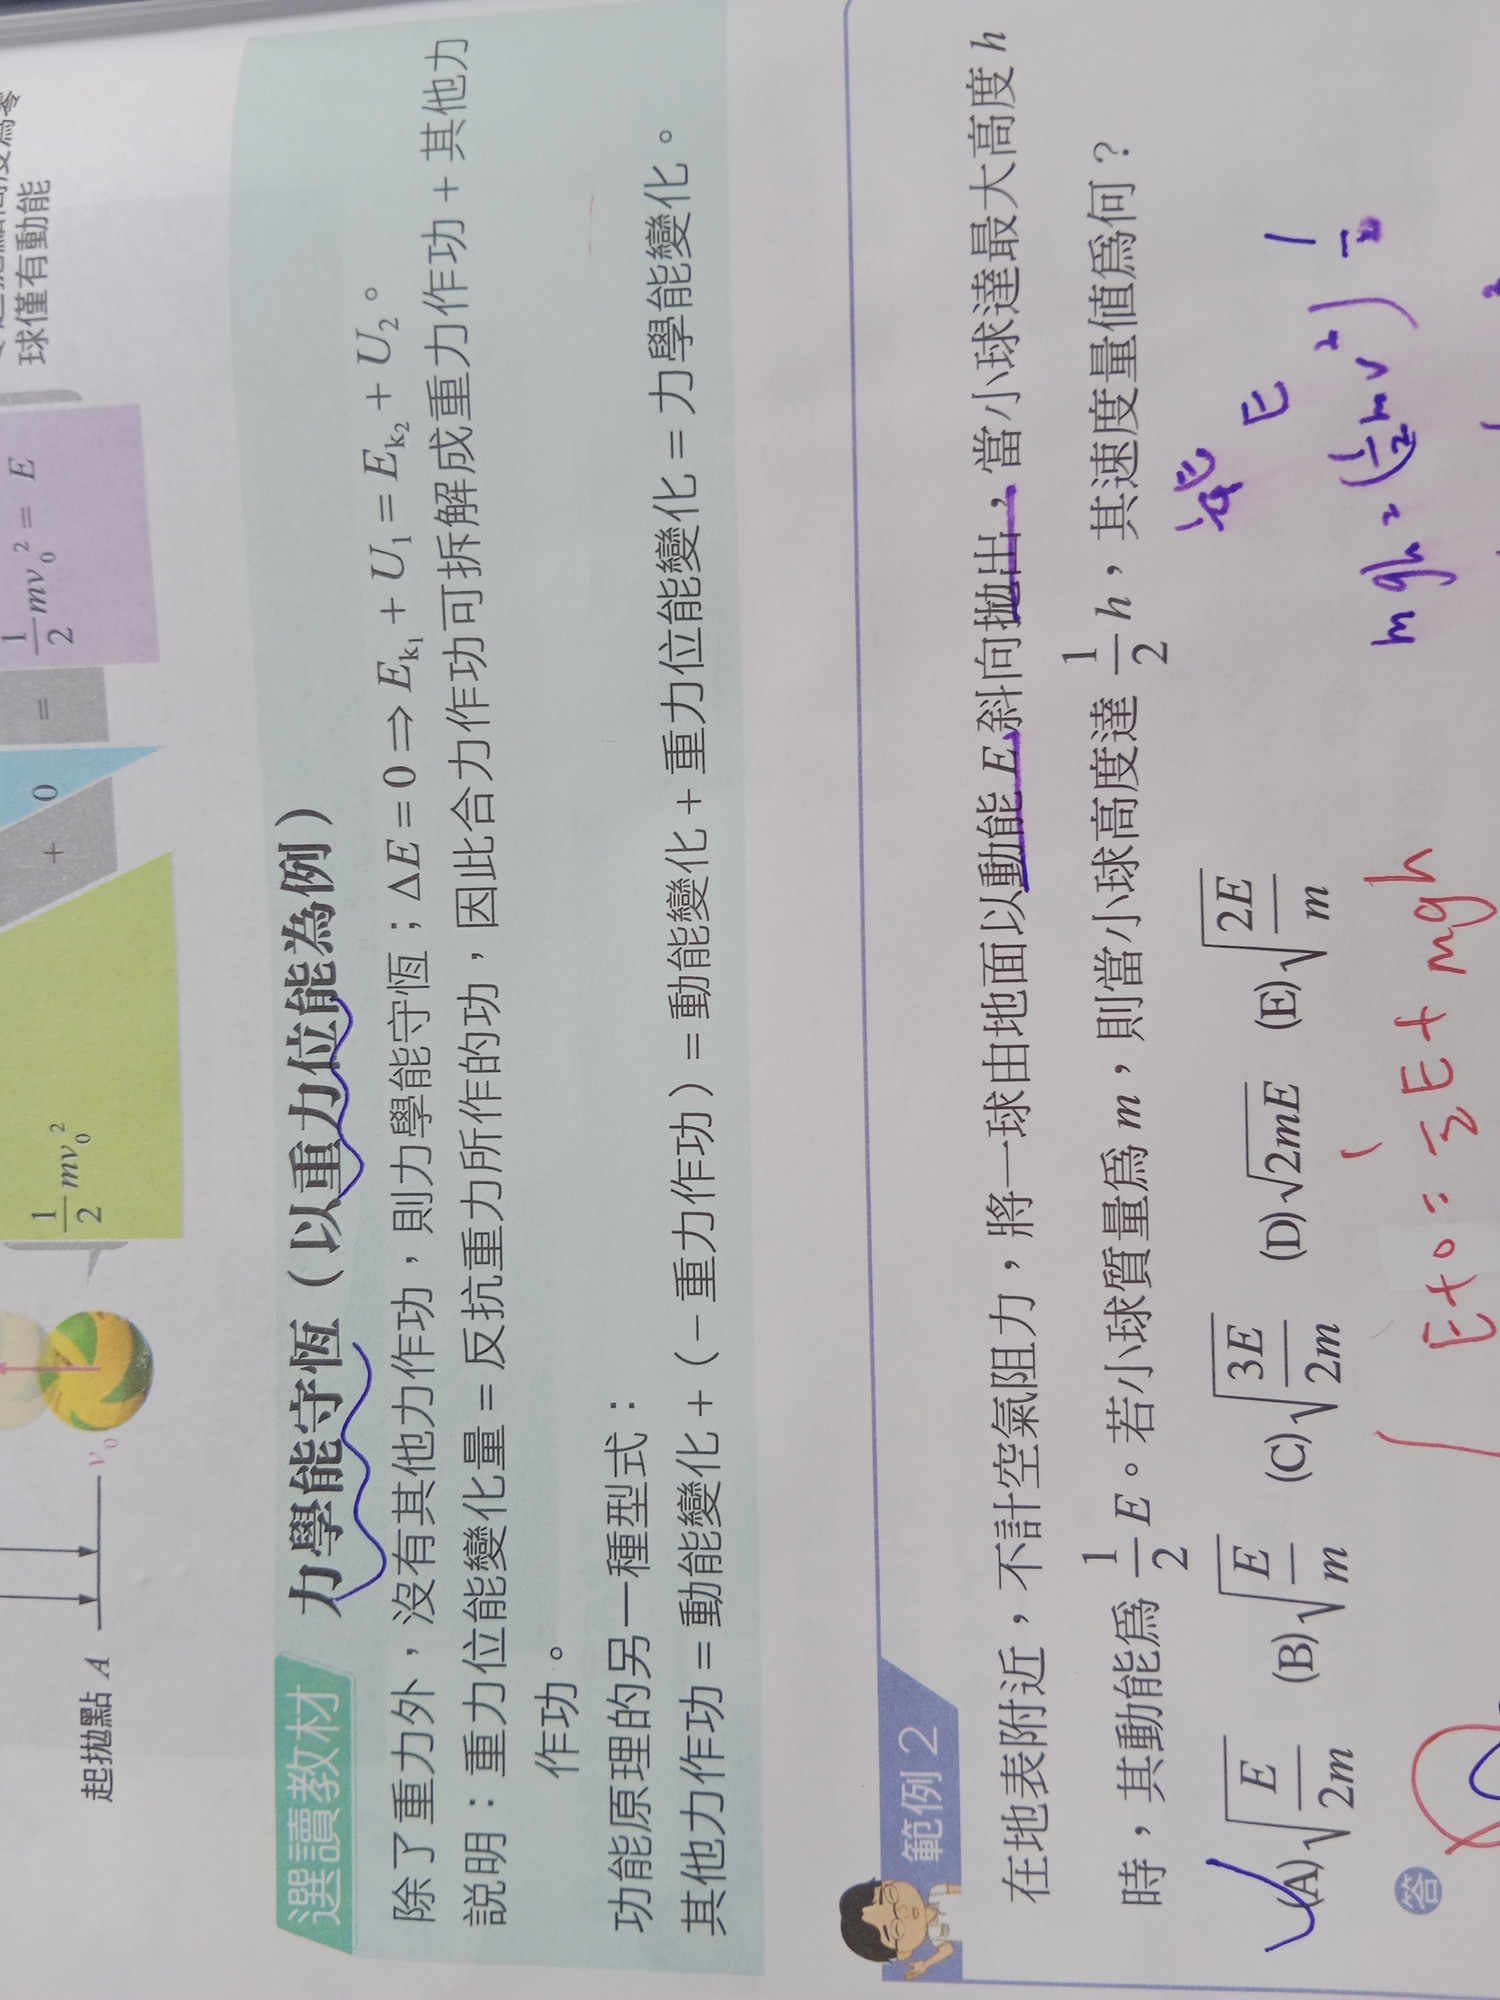 球僅有動能
起拋點 A
v₀
½mv₀²
+
0
=
½mv₀² = E
選讀教材
力學能守恆(以重力位能為例)
除了重力外,沒有其他力作功,則力學能守恆;ΔE = 0 ⇒ Eₖ₁ + U₁ = Eₖ₂ + U₂。
說明:重力位能變化量 = 反抗重力所作的功,因此合力作功可拆解成重力作功 + 其他力
作功。
功能原理的另一種型式:
其他力作功 = 動能變化 + (-重力作功) = 動能變化 + 重力位能變化 = 力學能變化。
範例 2
在地表附近,不計空氣阻力,將一球由地面以動能 E 斜向拋出,當小球達最大高度 h
時,其動能為 ½E。若小球質量為 m,則當小球高度達 ½h,其速度量值為何?
(A)√(E/2m) (B)√(E/m) (C)√(3E/2m) (D)√(2mE) (E)√(2E/m)
E
mgh = (½mv²)½
E+0 = ½E + mgh
答